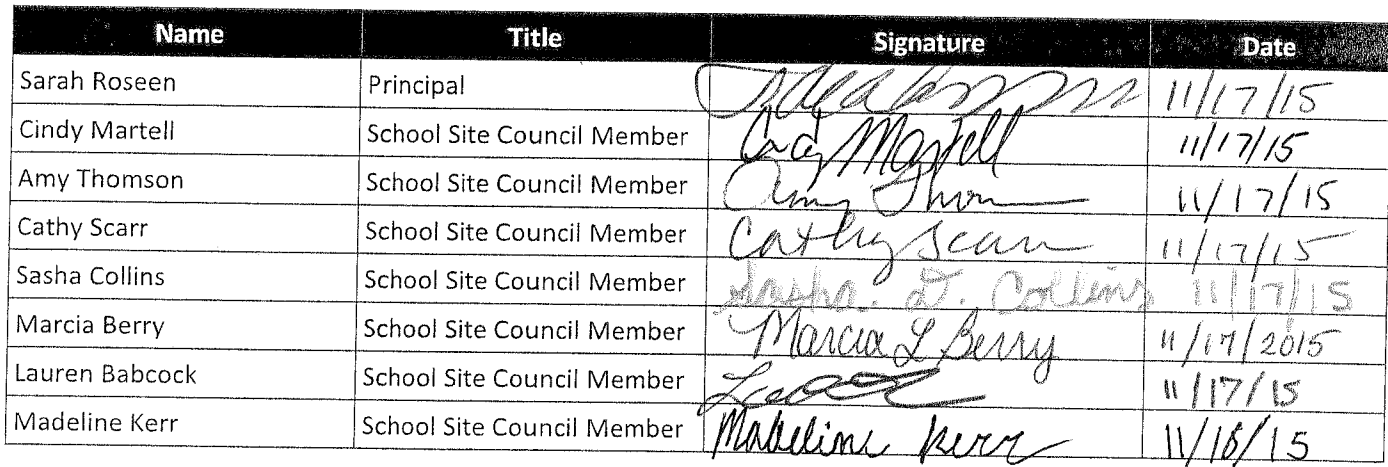 Name Title Signature Date
Sarah Roseen Principal 11/17/15
Cindy Martell School Site Council Member Cindy Martell 11/17/15
Amy Thomson School Site Council Member Amy Thom 11/17/15
Cathy Scarr School Site Council Member Cathy Scarr 11/17/15
Sasha Collins School Site Council Member Sasha. D. Collins 11/17/15
Marcia Berry School Site Council Member Marcia L Berry 11/17/2015
Lauren Babcock School Site Council Member 11/17/15
Madeline Kerr School Site Council Member Madeline Kerr 11/18/15